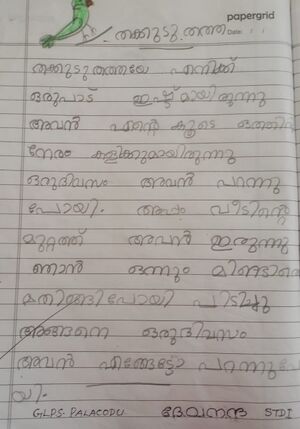 papergrid
Date: / /
തക്കുടു തത്ത
തക്കുടു തത്തയേ എനിക്ക്
ഒരുപാട് ഇഷ്ടമായിരുന്നു
അവൻ എന്റെ കൂടെ ഒത്തിരി
നേരം കളിക്കുമായിരുന്നു
ഒരുദിവസം അവൻ പറന്നു
പോയി. അപ്പം വീടിന്റെ
മുറ്റത്ത് അവൻ ഇരുന്നു
ഞാൻ ഒന്നും മിണ്ടാതെ
പിടിച്ചു
അങ്ങനെ ഒരുദിവസം
അവൻ എങ്ങോട്ടോ പറന്നുപോ
യി.
GLPS. PALACODU ദേവനന്ദ STD I